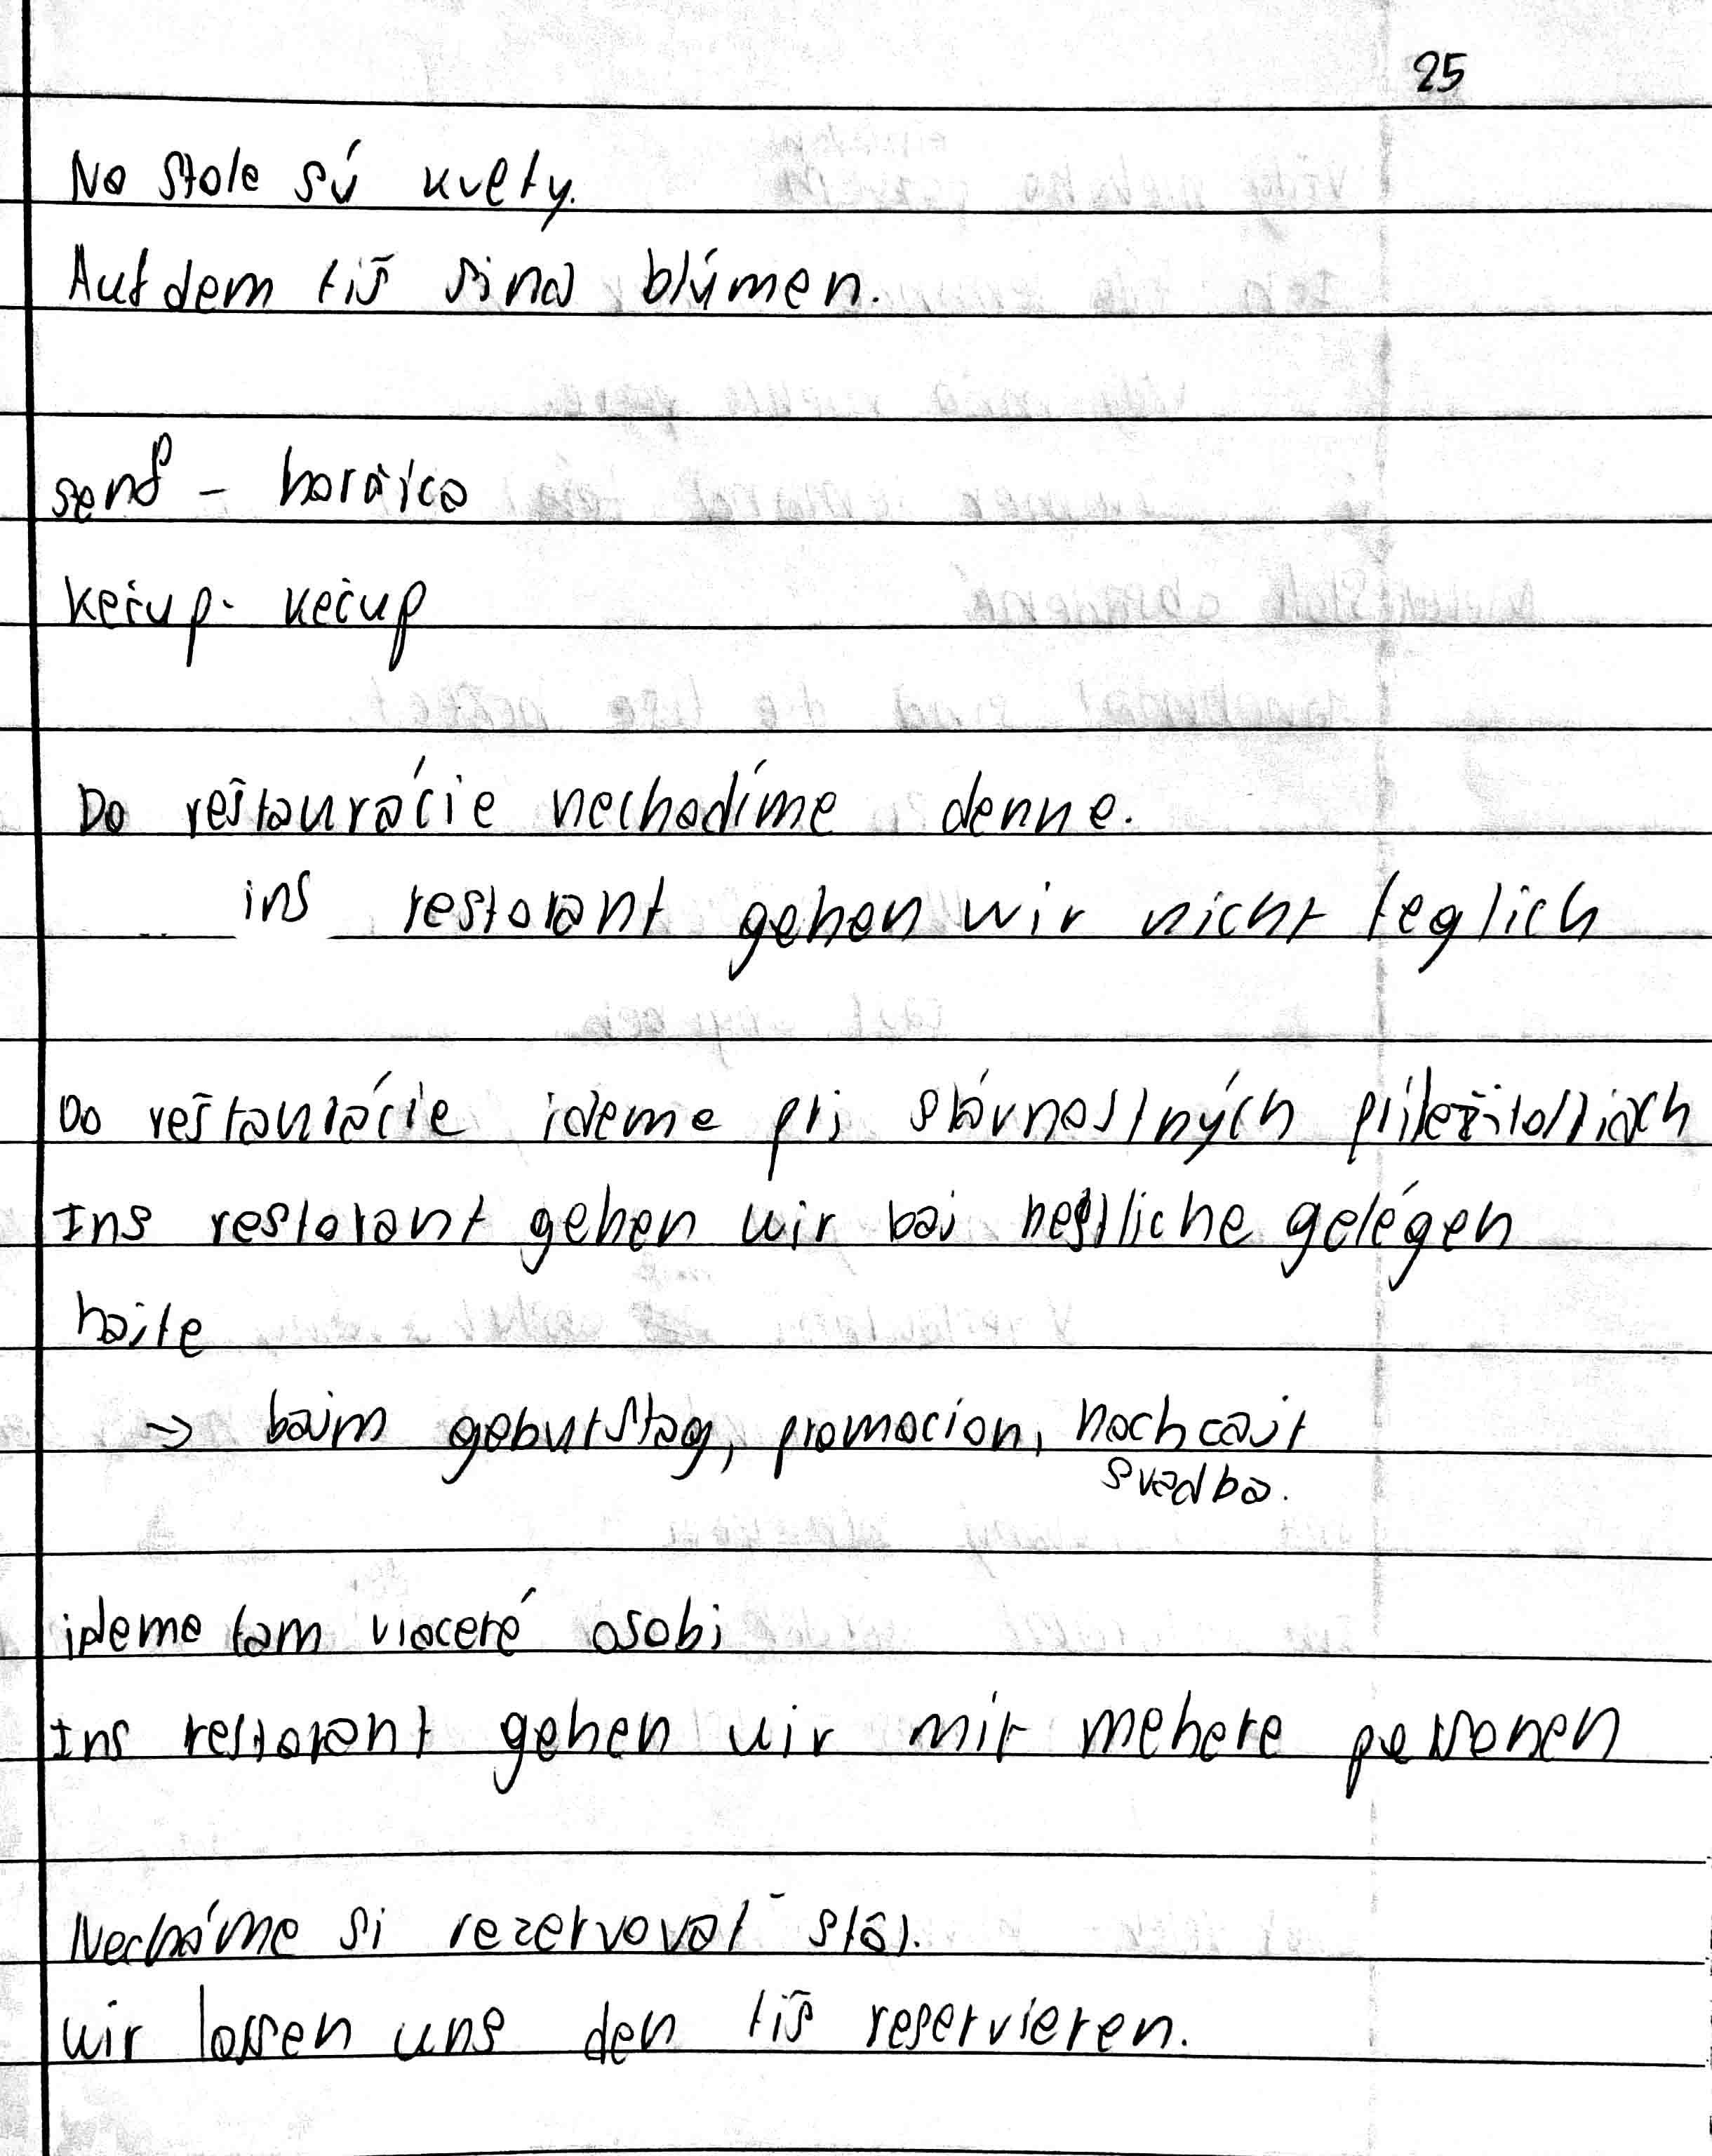 25
Na stole sú kvety.
Auf dem tiš sind blúmen.
senf - horčica
kečup - kečup
Do reštaurácie nechodíme denne.
ins restorant gehen wir nicht teglich
Do reštaurácie ideme pri slávnostných príležitostiach
Ins restorant gehen wir bai festliche gelégen
haite
→ baim geburtstag, promocion, hochcait
svadba.
ideme tam viaceré osobi
Ins restorant gehen wir mit mehere personen
Necháme si rezervovať stôl.
wir lassen uns den tiš reservieren.